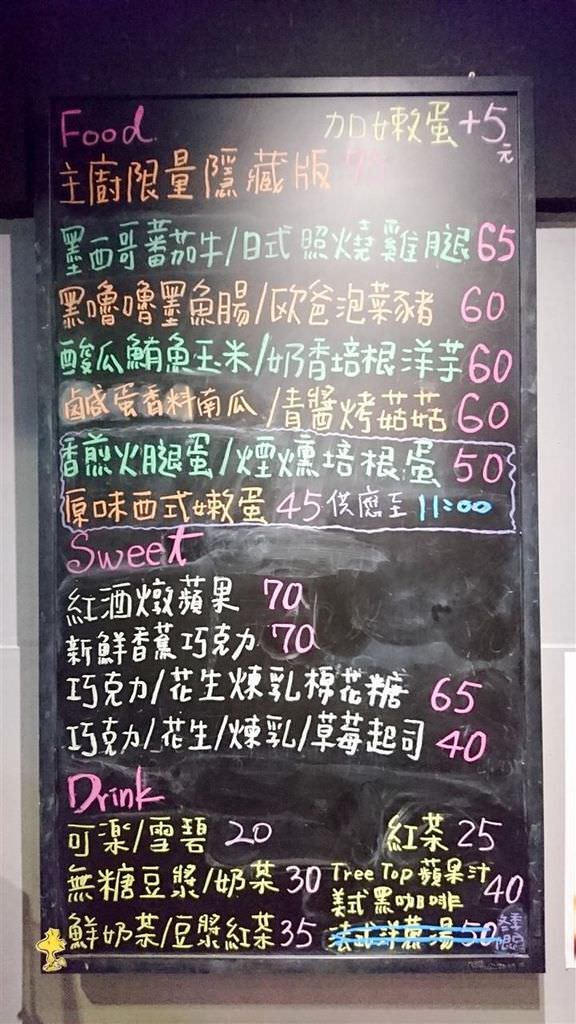 Food 加嫩蛋+5元
主廚限量隱藏版
墨西哥蕃茄牛/日式照燒雞腿 65
黑嚕嚕墨魚腸/歐爸泡菜豬 60
酸瓜鮪魚玉米/奶香培根洋芋 60
鹹蛋香料南瓜/青醬烤菇菇 60
香煎火腿蛋/煙燻培根蛋 50
原味西式嫩蛋 45 供應至 11:00
Sweet
紅酒燉蘋果 70
新鮮香蕉巧克力 70
巧克力/花生煉乳棉花糖 65
巧克力/花生/煉乳/草莓起司 40
Drink
可樂/雪碧 20 紅茶 25
無糖豆漿/奶茶 30 Tree Top 蘋果汁
美式黑咖啡 40
鮮奶茶/豆漿紅茶 35 法式洋蔥湯 50 冬季限定